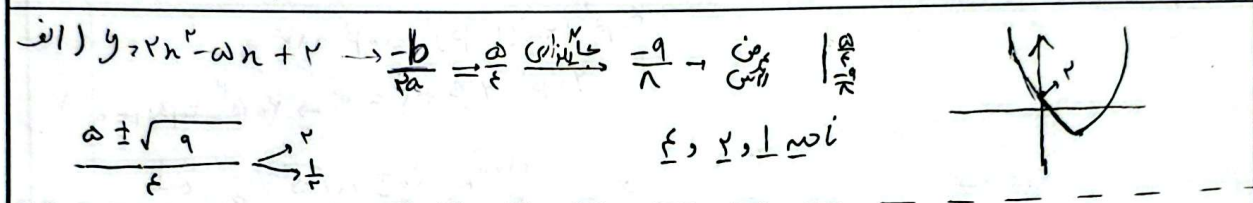 الف) y=۲x^۲-۵x+۲ → -b/۲a = ۵/۴ جایگذاری → -۹/۸ → عرض رأس | ۵/۴ -۹/۸
۲
۵±√۹/۴ < ۲ ۱/۲ ناحیه ۱ و ۲ و ۴